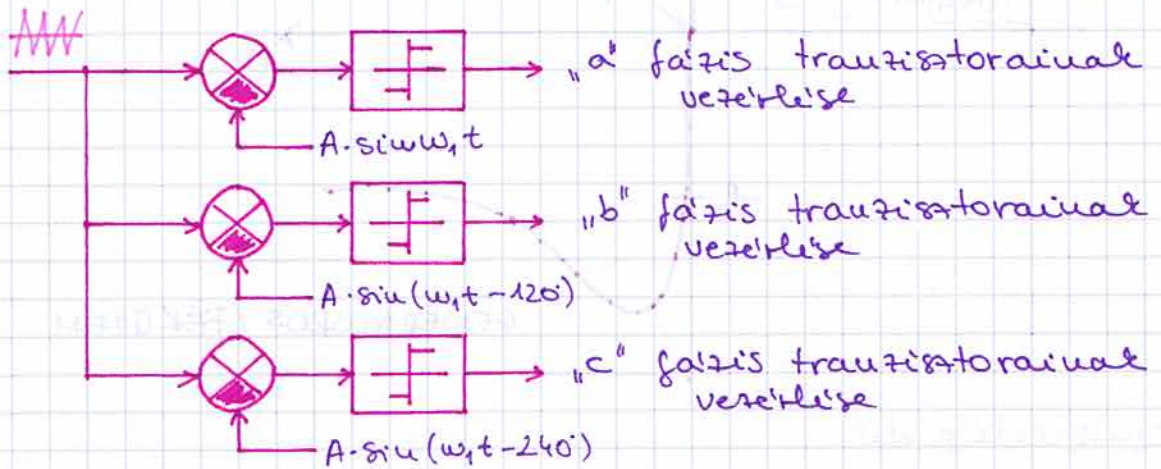 „a" fázis tranzisztorainak
vezérlése
A·sinω₁t
„b" fázis tranzisztorainak
vezérlése
A·sin(ω₁t-120°)
„c" fázis tranzisztorainak
vezérlése
A·sin(ω₁t-240°)